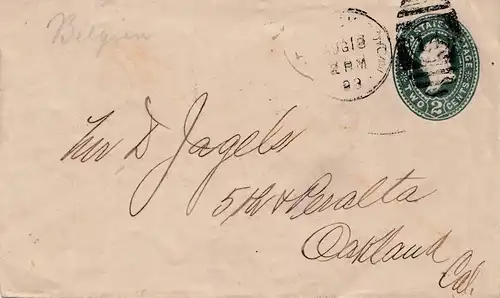 Belgien
AUG 18
2 PM
99
STATES POSTAGE
TWO 2 CENTS
D Jagels
5th & Peralta
Oakland
Cal.